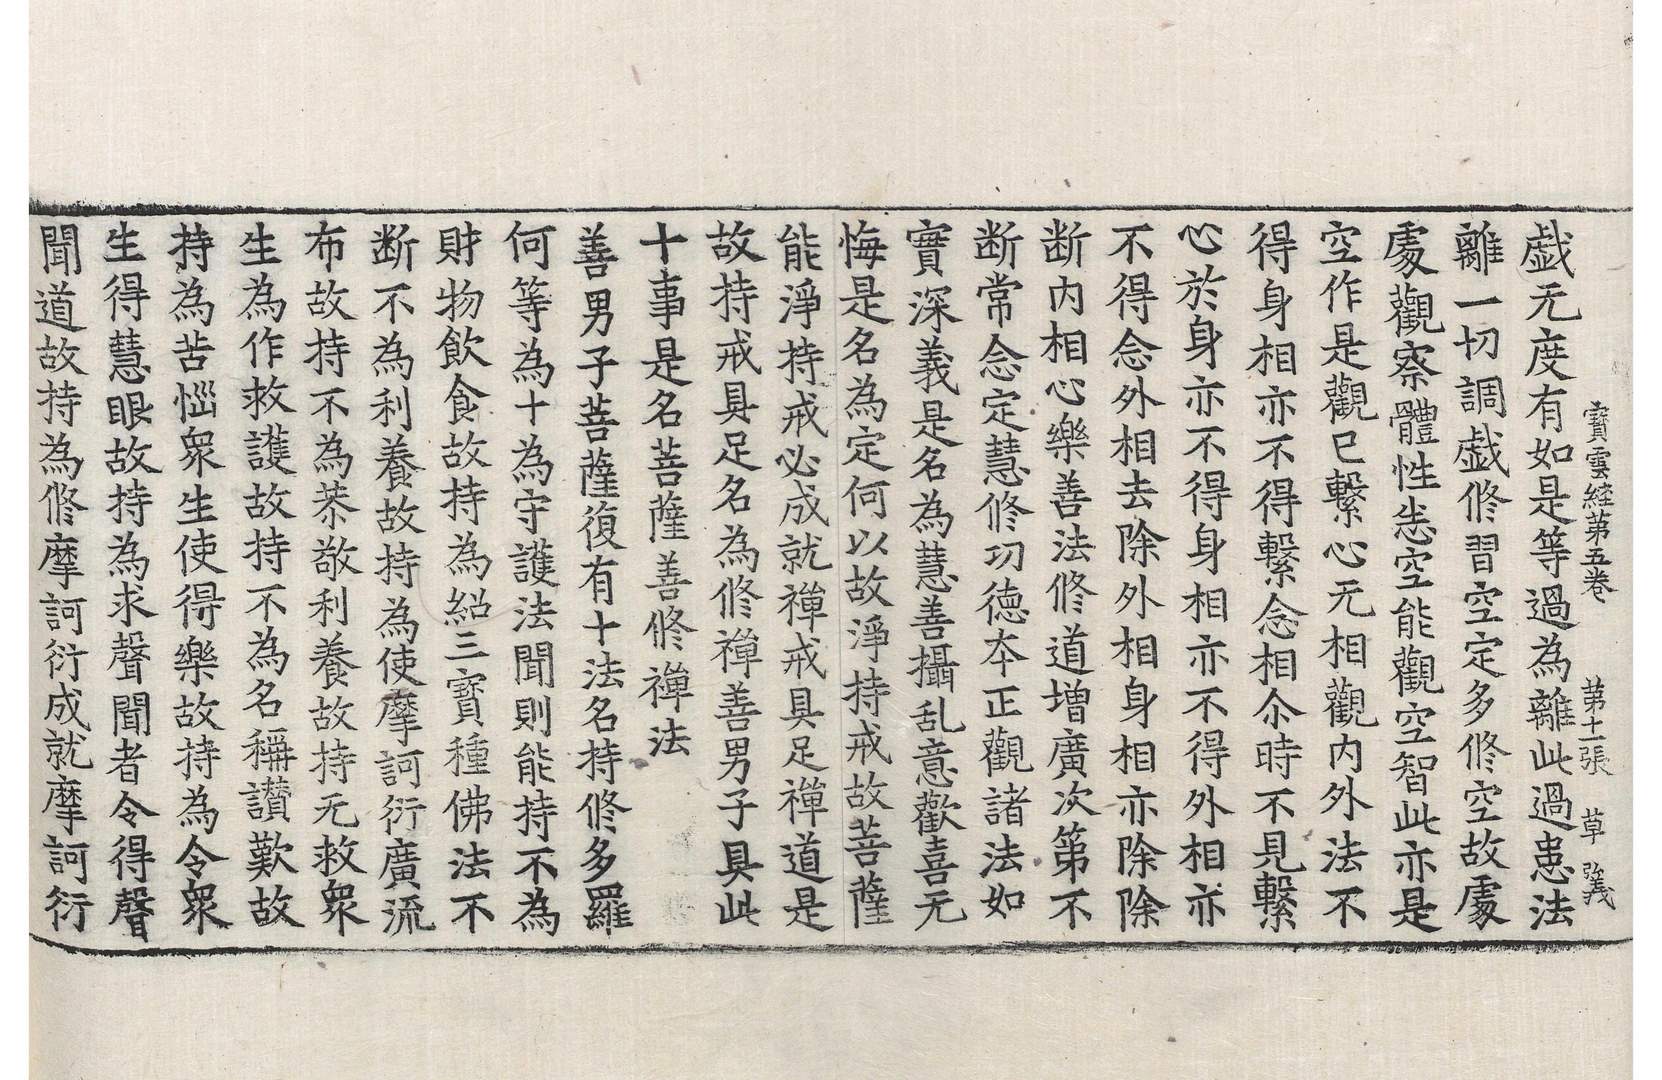 寶雲經第五卷 第十一張 草 㦤
戱无度有如是等過為離此過患法
離一切調戱修習空定多修空故䖏
䖏觀察體性悉空能觀空智此亦是
空作是觀已繫心无相觀內外法不
得身相亦不得繫念相尒時不見繫
心於身亦不得身相亦不得外相亦
不得念外相去除外相身相亦除除
断內相心樂善法修道增廣次第不
断常念定慧修㓛德夲正觀諸法如
實深義是名為慧善攝乱意歡喜无
悔是名為定何以故淨持戒故菩薩
能淨持戒必成就禅戒具足禅道是
故持戒具足名為修禅善男子具此
十事是名菩薩善修禅法
善男子菩薩復有十法名持修多羅
何等為十為守護法聞則能持不為
財物飲食故持為紹三寶種佛法不
断不為利養故持為使摩訶衍廣流
布故持不為恭敬利養故持无救衆
生為作救護故持不為名稱讃歎故
持為苦惱衆生使得樂故持為令衆
生得慧眼故持為求聲聞者令得聲
聞道故持為修摩訶衍成就摩訶衍